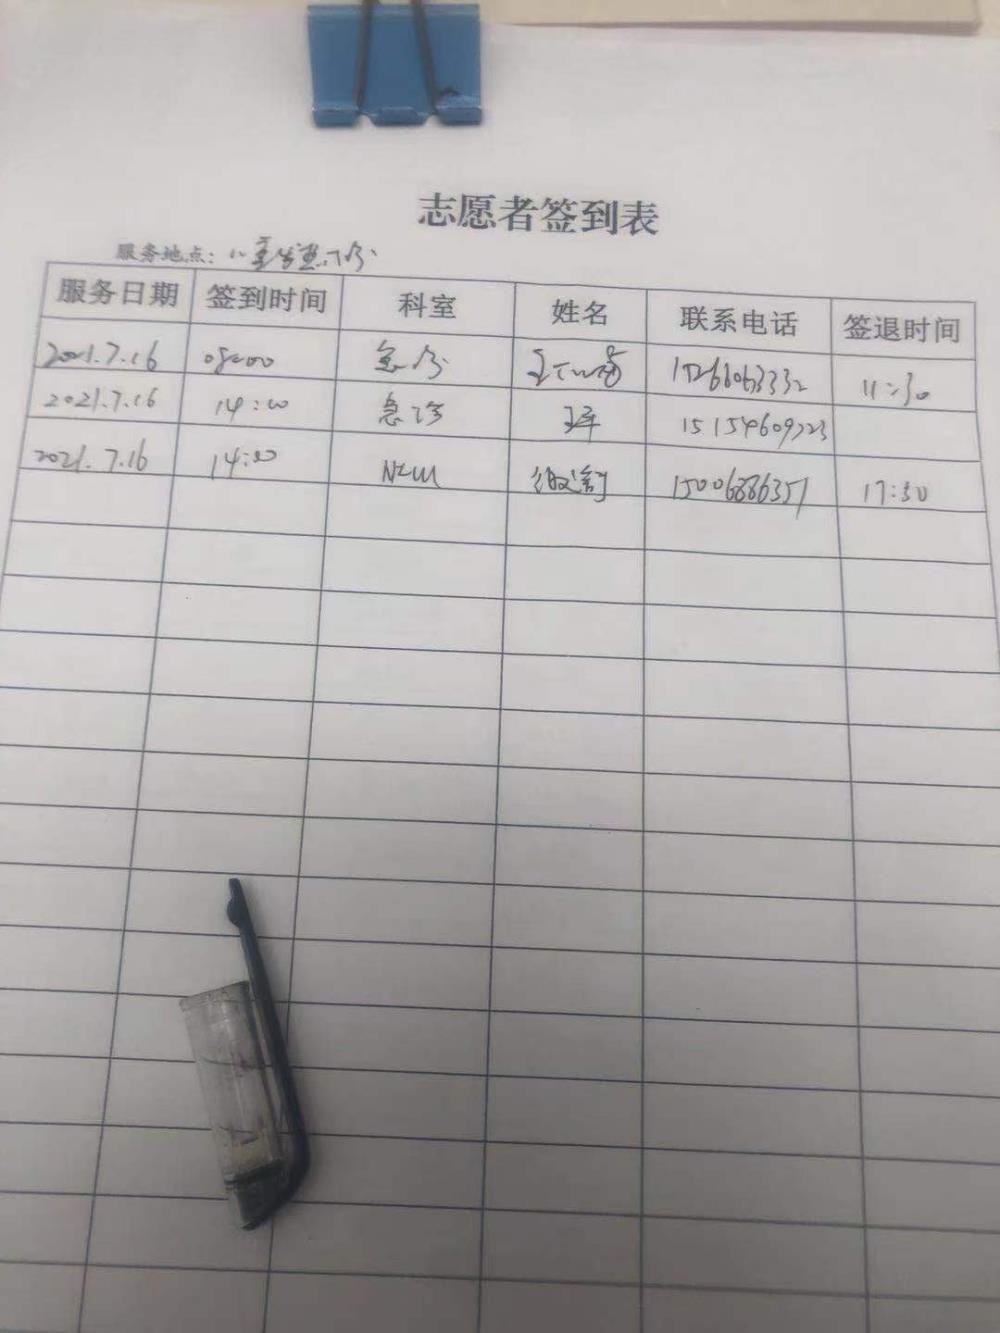 志愿者签到表
服务地点：儿童发热门诊
服务日期 签到时间 科室 姓名 联系电话 签退时间
2021.7.16 08:00 急诊 11:30
2021.7.16 14:00 急诊 15154609723
2021.7.16 14:00 15006886351 17:30